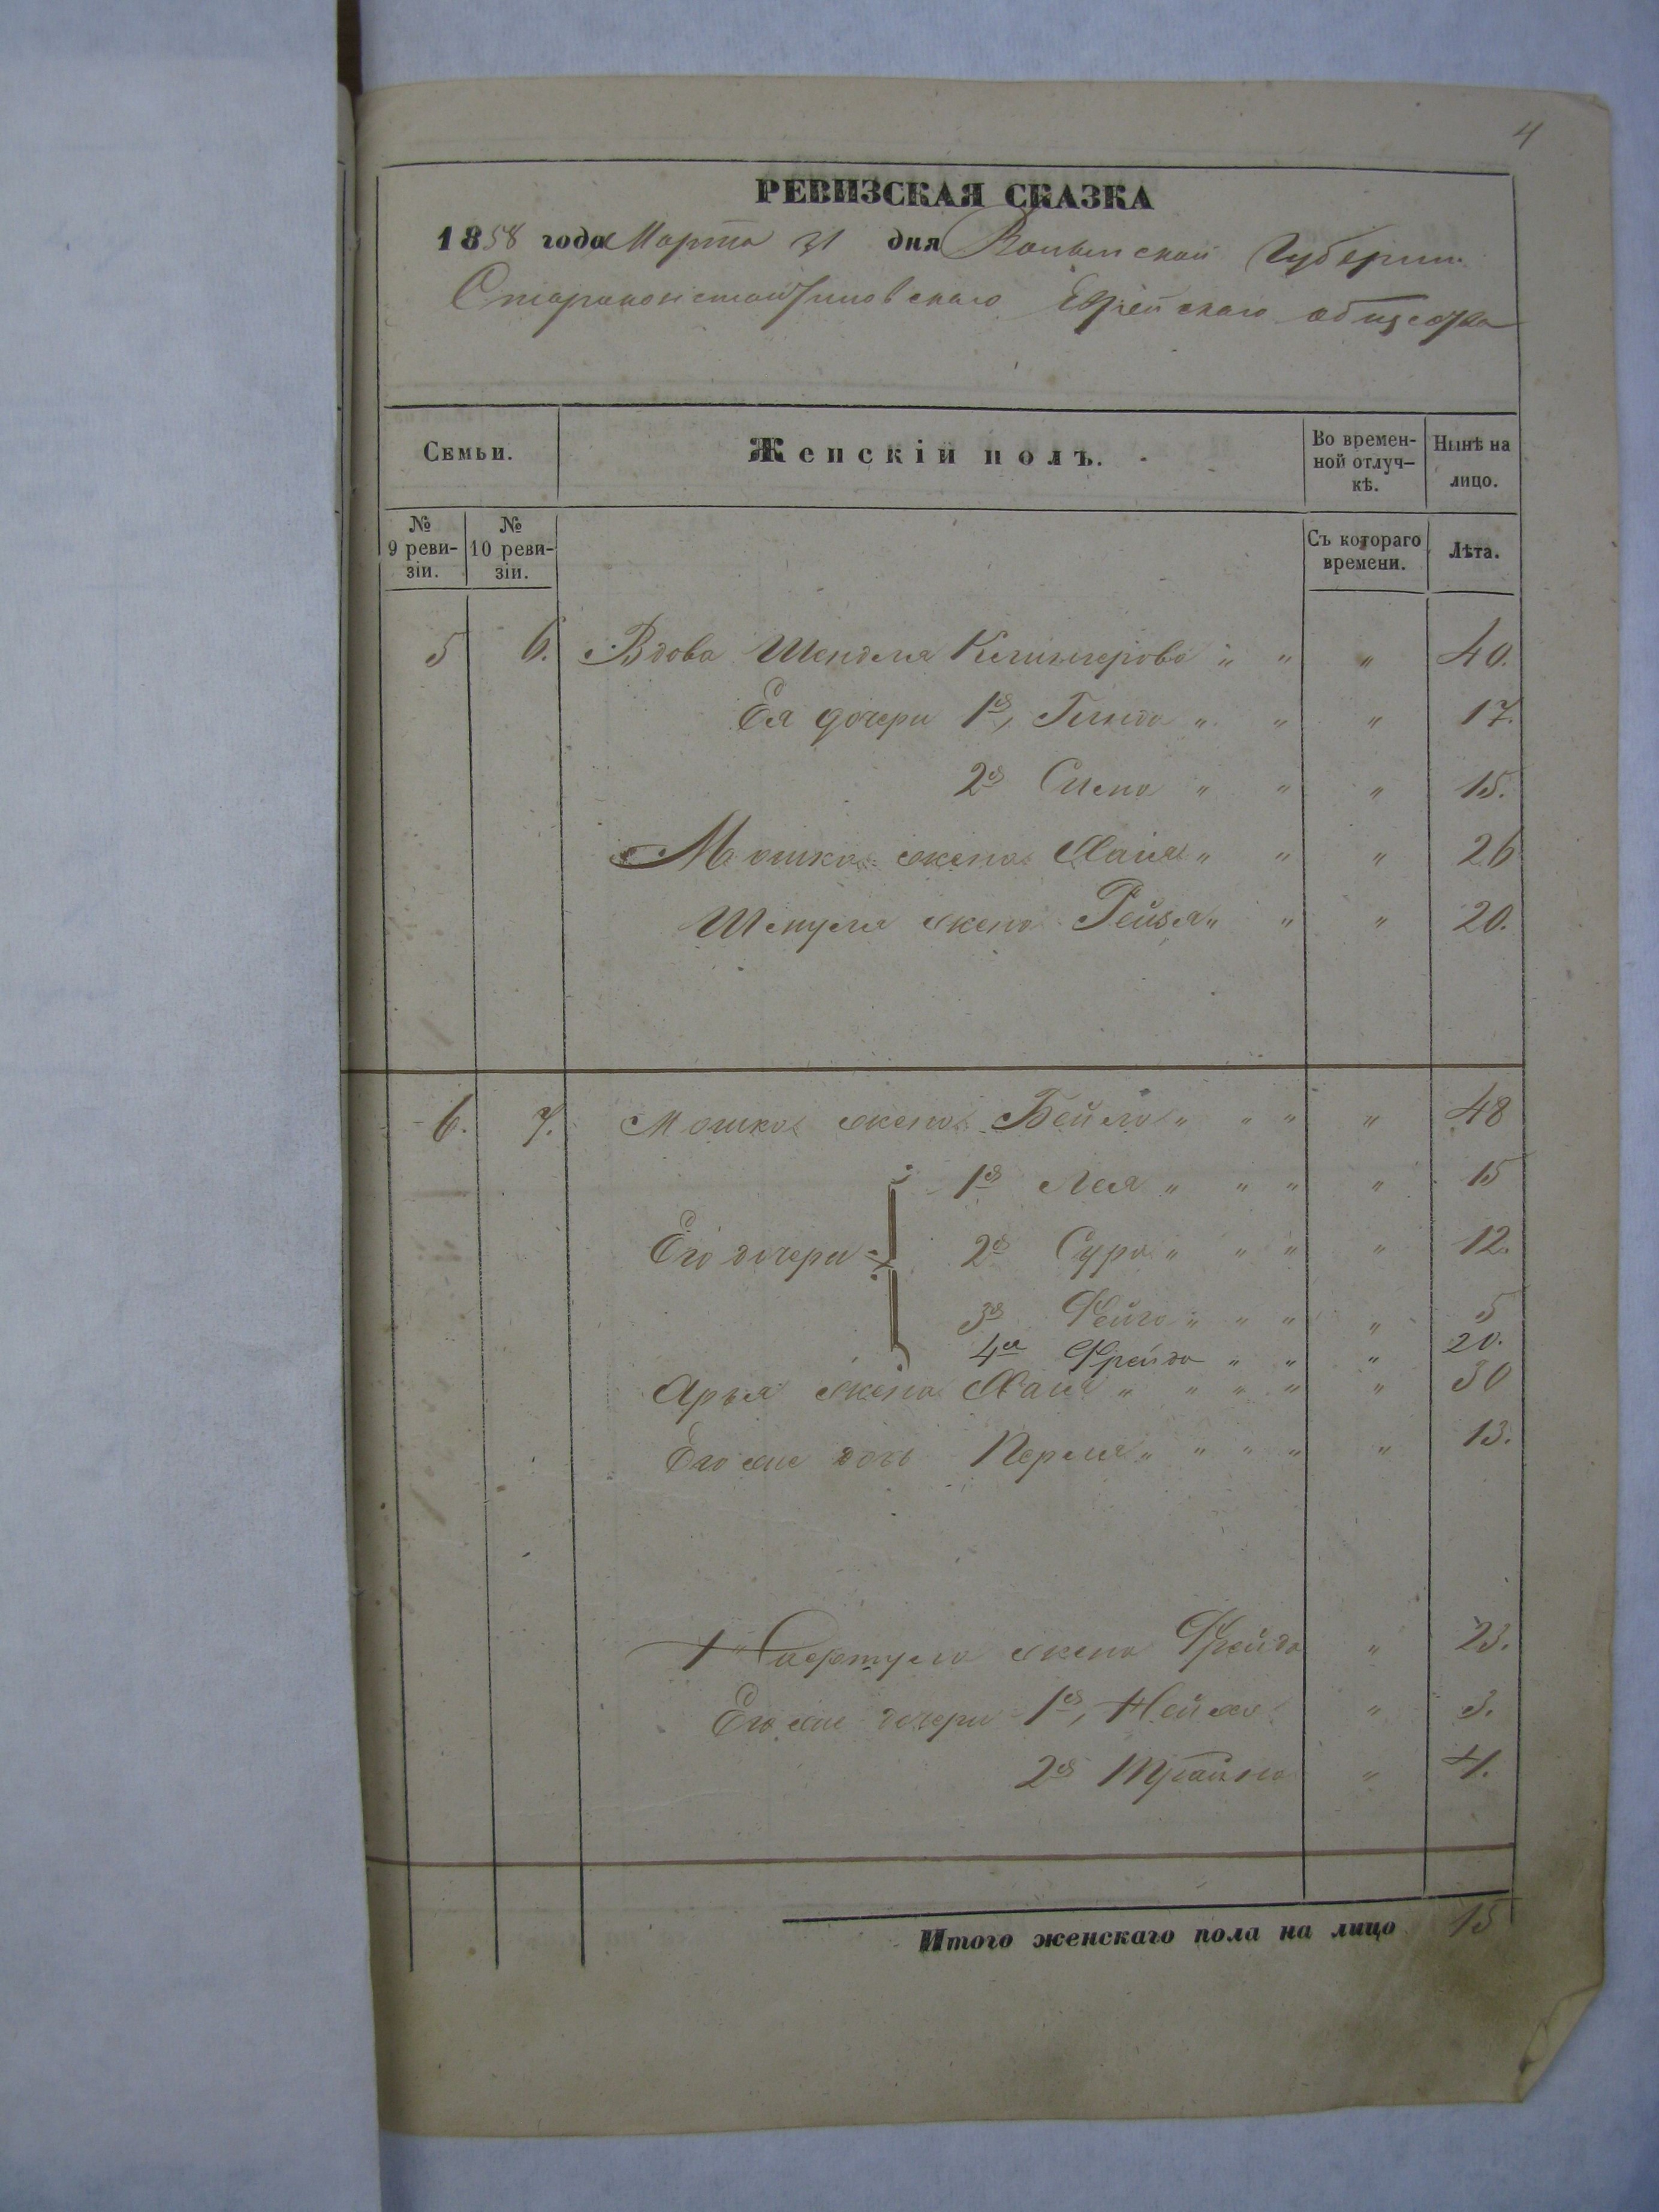 4
РЕВИЗСКАЯ СКАЗКА
1858 года Марта 31 дня Волынской Губернии
Староконстантиновскаго Еврейскаго общества
Семьи. Женскій полъ. Во временной отлучкѣ. Нынѣ на лицо.
№ 9 ревизіи. № 10 ревизіи. Съ котораго времени. Лѣта.
5 6. Вдова Шендля " " " 40.
Ея дочери 1я, Гинда " " " 17.
2я " " " 15.
Мошка жена Хаия " " " 26
Шмуля жена Рейзя " " " 20.
6. 7. Мошка жена Бейла " " " " 48
1я Лея " " " " 15
Его дочери 2я Сура " " " " 12.
3я Фейга " " " " 5
4я Фрейда " " " 20.
Арья жена Хаия " " " " " 30
Его же дочь Перля " " " " " 13.
Нафтула жена Фрейда " 23.
Его же дочери 1я, Нейха " 3.
2я " 4.
Итого женскаго пола на лицо 15